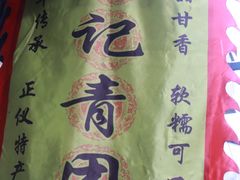 记青团
传承
正仪特产
甘香
软糯可